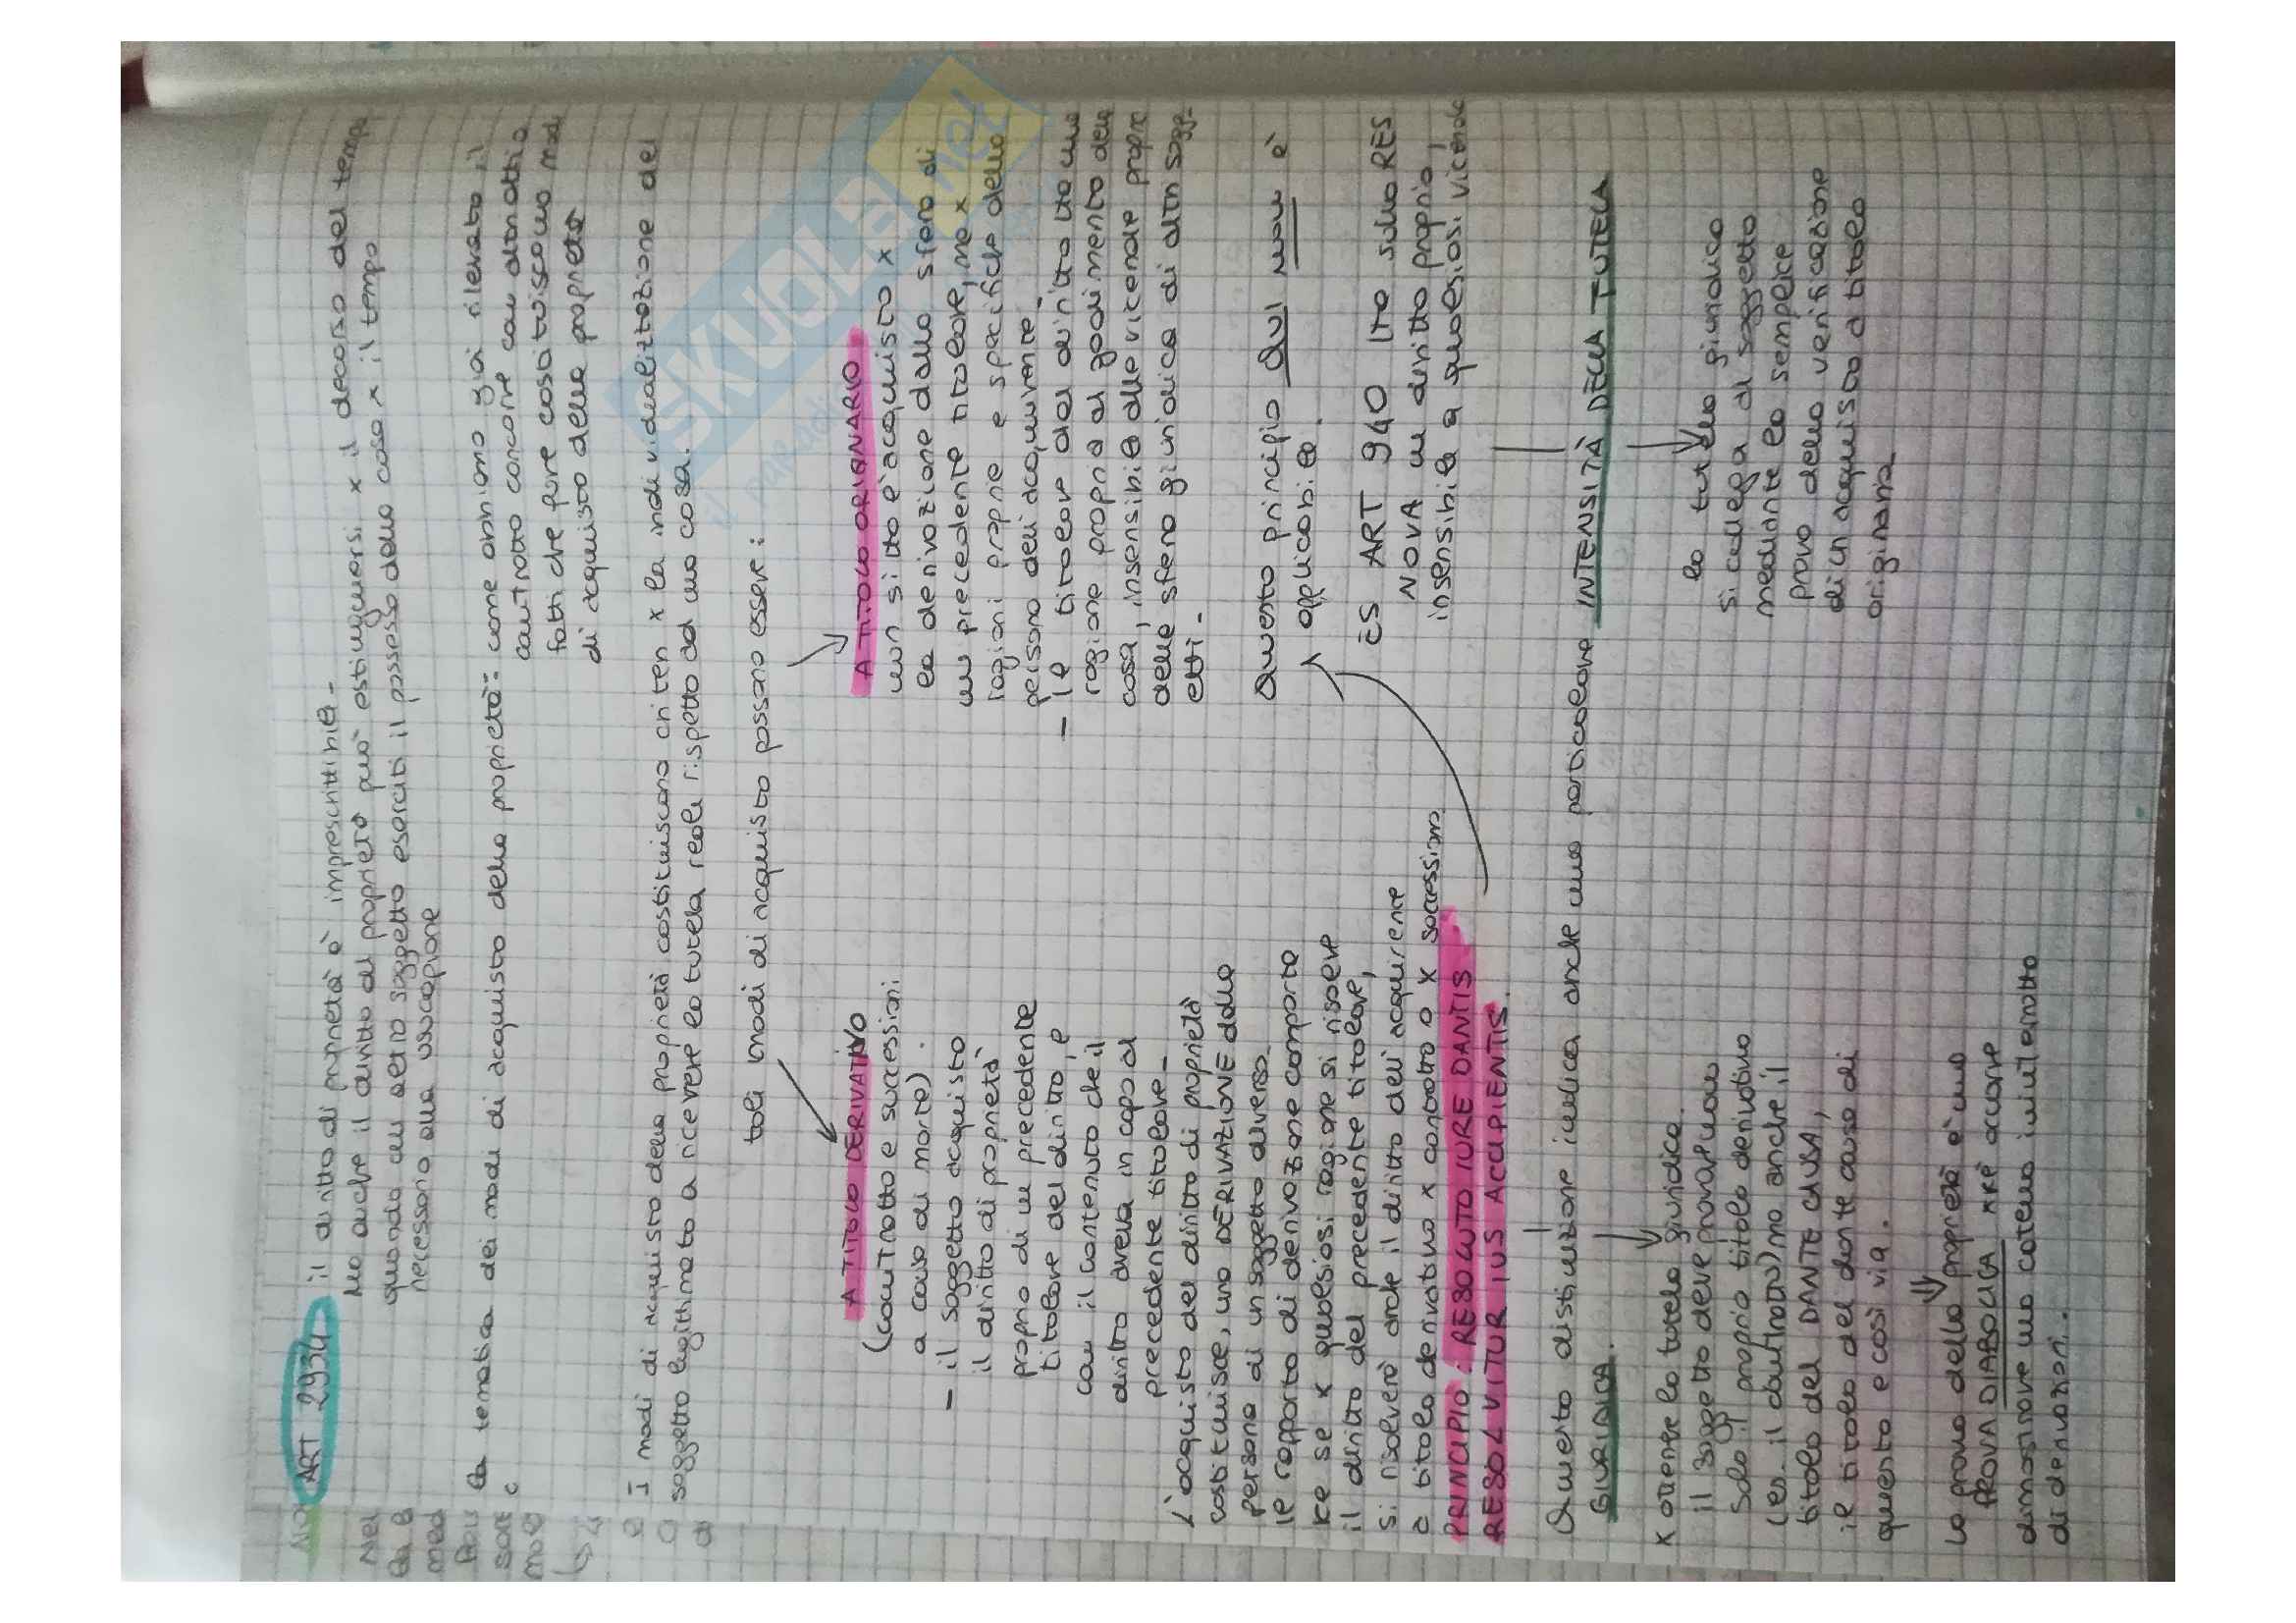 ART 2934 il diritto di proprietà è imprescrittibile -
Ma anche il diritto di proprietà può estinguersi x il decorso del tempo
quando un altro soggetto eserciti il possesso della cosa x il tempo
necessario alla usucapione
la tematica dei modi di acquisto della proprietà: come abbiamo già rilevato il
contratto concorre con altri
fatti che pure costituiscono modi
di acquisto della proprietà
I modi di acquisto della proprietà costituiscono criteri x la individualizzazione del
soggetto legittimato a ricevere la tutela reale rispetto ad una cosa.
tali modi di acquisto possono essere:
A TITOLO DERIVATIVO
(contratto e successioni
a causa di morte).
- il soggetto acquista
il diritto di proprietà
proprio di un precedente
titolare del diritto, e
con il contenuto che il
diritto aveva in capo al
precedente titolare -
L'acquisto del diritto di proprietà
costituisce, una DERIVAZIONE dalla
persona di un soggetto diverso.
il rapporto di derivazione comporta
che se x qualsiasi ragione si risolve
il diritto del precedente titolare,
si risolverà anche il diritto dell'acquirente
a titolo derivativo x contratto o x successione
PRINCIPIO: RESOLUTO IURE DANTIS
RESOLVITUR IUS ACCIPIENTIS.
A TITOLO ORIGINARIO
non si ha l'acquisto x
la derivazione dalla sfera di
un precedente titolare, ma x
ragioni proprie e specifiche della
persona dell'acquirente -
- il titolare del diritto ha una
ragione propria al godimento della
cosa, insensibile alle vicende proprie
della sfera giuridica di altri sogg-
etti -
Questo principio QUI non è
applicabile.
ES ART 940 ha sulla RES
NOVA un diritto proprio,
insensibile a qualsiasi vicenda
Questa distinzione implica anche una particolare INTENSITÀ DELLA TUTELA
GIURIDICA.
x ottenere la tutela giuridica
il soggetto deve provare non
solo il proprio titolo derivativo
(es. il contratto) ma anche il
titolo del DANTE CAUSA,
il titolo del dante causa di
questo e così via.
La prova della proprietà è una
PROVA DIABOLICA xkè occorre
dimostrare una catena ininterrotta
di derivazioni.
la tutela giuridica
si collega al soggetto
mediante la semplice
prova della verificazione
di un acquisto a titolo
originario
SKUOLA.net